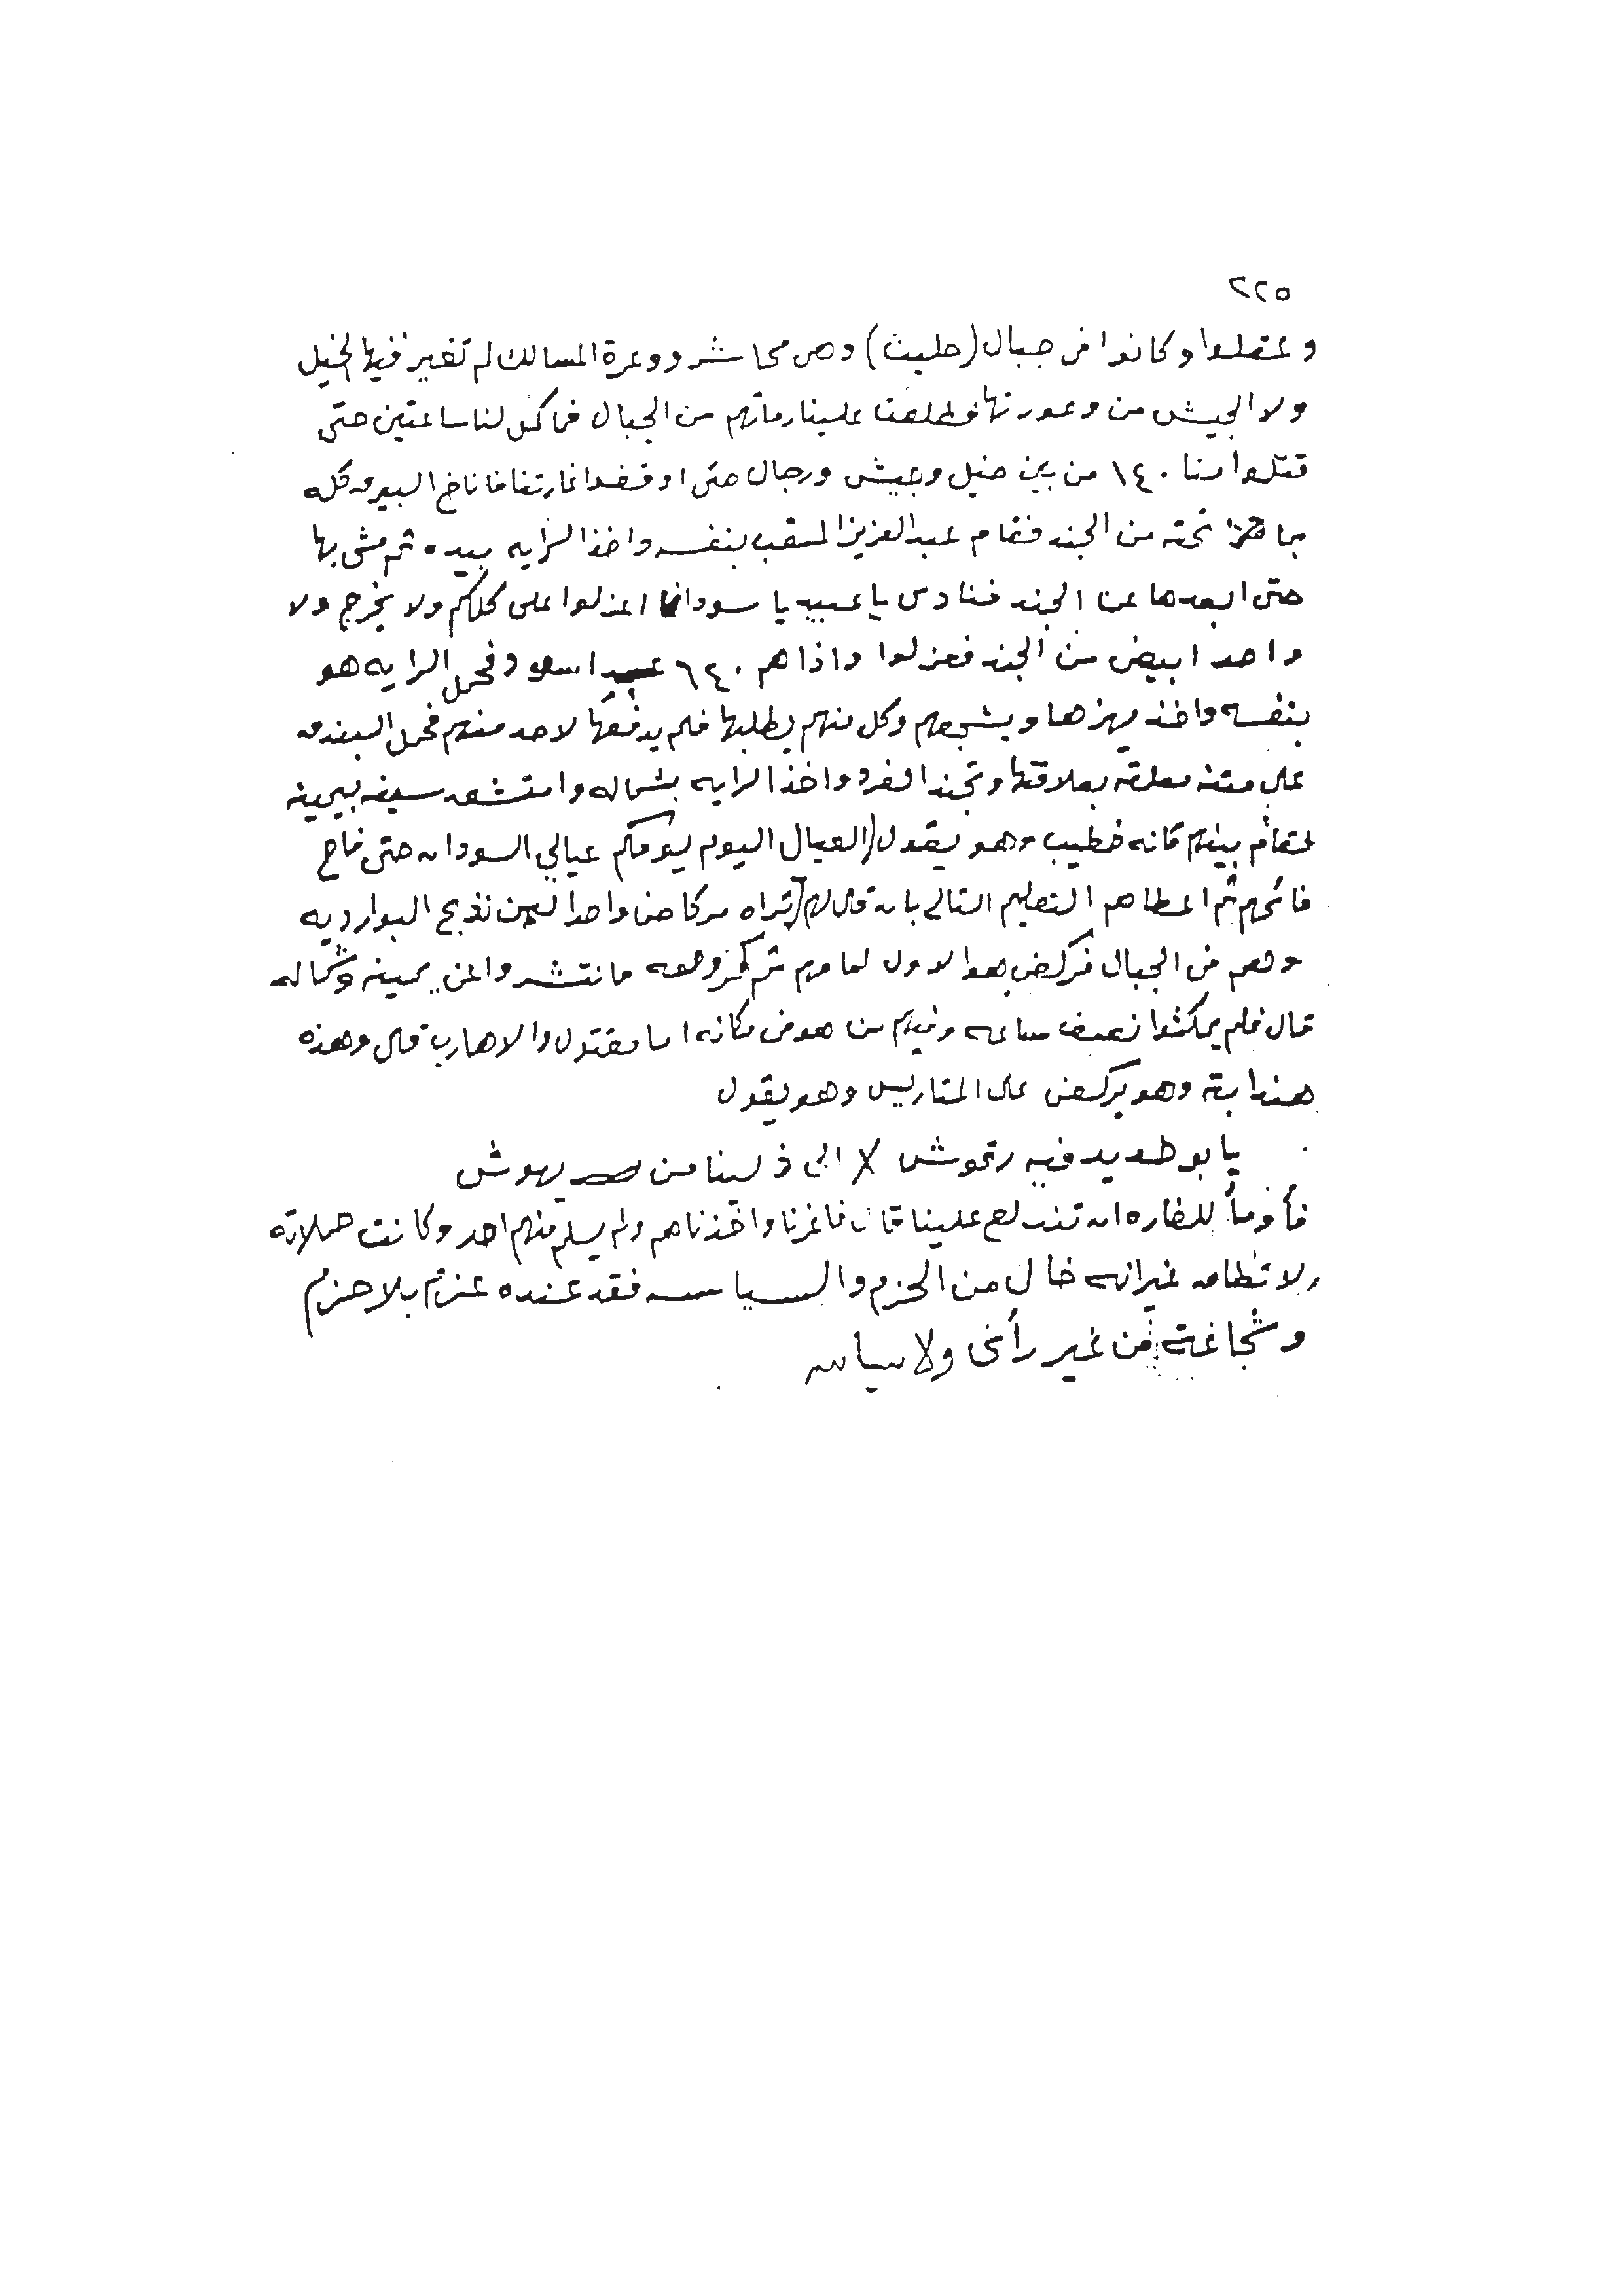 ٢٢٥
وعقلوا وكانوا في جبال (حليث) وهي محاشر ووعرة المسالك لم تغير فيها الخيل
ولا الجيش من وعورتها فطلعت علينا رماتهم من الجبال فما كمل لنا ساعتين حتى
قتلوا منا ١٤٠ من بين خيل وجيش ورجال حتى اوقفوا غارتنا فاناخ البيرق كله
بما تحته من الجند فقام عبدالعزيز المتعب بنفسه واخذ الرايه بيده ثم مشى بها
حتى ابعدها عن الجند فنادى يا عبيد يا سودان اعزلوا على كلكم ولا يخرج ولا
واحد ابيض من الجند فعزلوا واذا هم ٦٤٠ عبدا اسود فحمل الرايه هو
بنفسه واخذ يهزها ويشجعهم وكل منهم يطلبها فلم يدفعها لاحد منهم فحمل البندق
على متنه معلقه بعلاقتها وتجند الفرد واخذ الرايه بشماله وامتشق سيفه بيمينه
فقام بينهم كانه خطيب وهو يقول (العيال اليوم يومكم عيالي السودان حتى فاح
فائحهم ثم اعطاهم التعليم التالي بان قال لهم (تراه مركاض واحد لمين نذبح البوارديه
وهم في الجبال فركض هو الاول امامهم ثم ركزوا معه فانتشروا الى يمينه وشماله
قال فلم يمكثوا نصف ساعه وفيهم من هو في مكانه اما مقتول والا هارب قال وهذه
هندابة وهو يركض على المتاريس وهو يقول
يابو طديد فيه رتحوش لا الى ذلينا من يهوش
فأومأ للغاره ان تندلع علينا قال فاغرنا واخذناهم ولم يسلم منهم احد وكانت حملاته
لا تطاق غير انه خال من الحزم والسياسه فقد عنده عزم بلا حزم
وشجاعة من غير رأى ولا سياسه